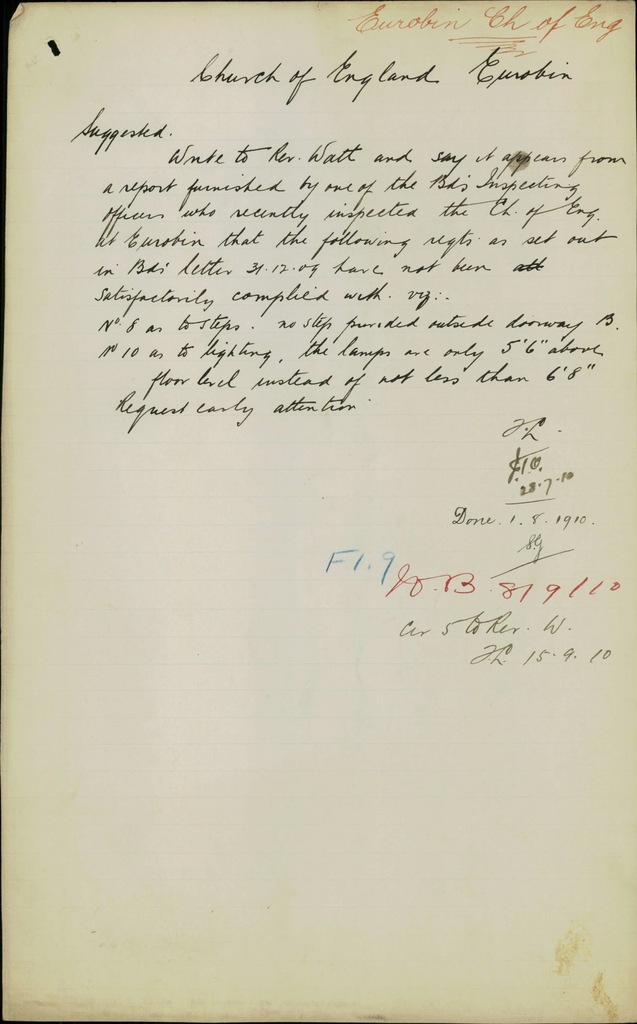 Eurobin Ch of Eng
Church of England Eurobin
Suggested.
Write to Rev. Watt and say it appears from
a report furnished by one of the Bd's Inspecting
officers who recently inspected the Ch. of Eng.
at Eurobin that the following regts. as set out
in Bd's letter 31.12.09 have not been
satisfactorily complied with. viz:-
No. 8 as to steps. no step provided outside doorway B.
No 10 as to lighting, the lamps are only 5'6" above
floor level instead of not less than 6'8"
Request early attention
28.7.10
Done. 1.8.1910.
F1.9
W.B. 8/9/10
Cir 5 to Rev. W.
15.9.10